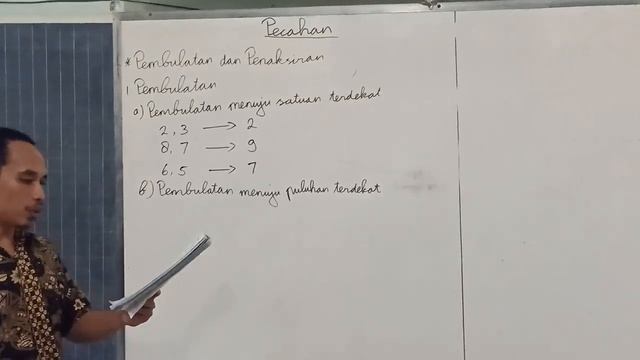 Pecahan
* Pembulatan dan Penaksiran
1 Pembulatan
a) Pembulatan menuju satuan terdekat
2,3 → 2
8,7 → 9
6,5 → 7
b) Pembulatan menuju puluhan terdekat